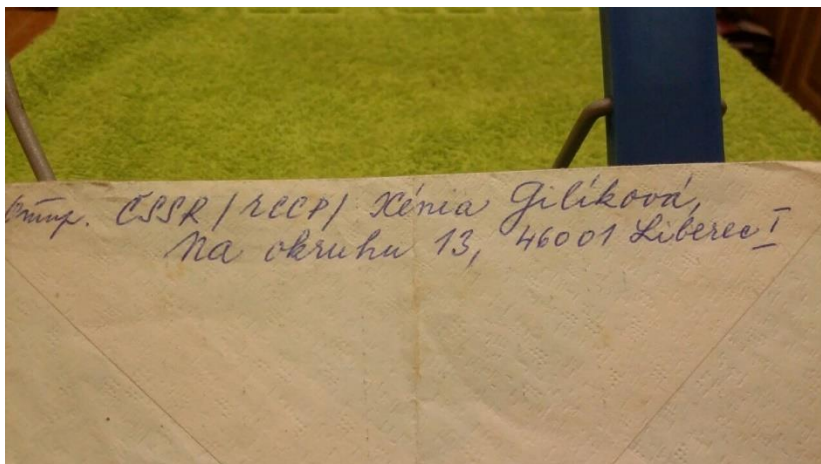 Отпр. ČSSR /ЧССР/ Xénia Gilíková,
Na okruhu 13, 46001 Liberec I